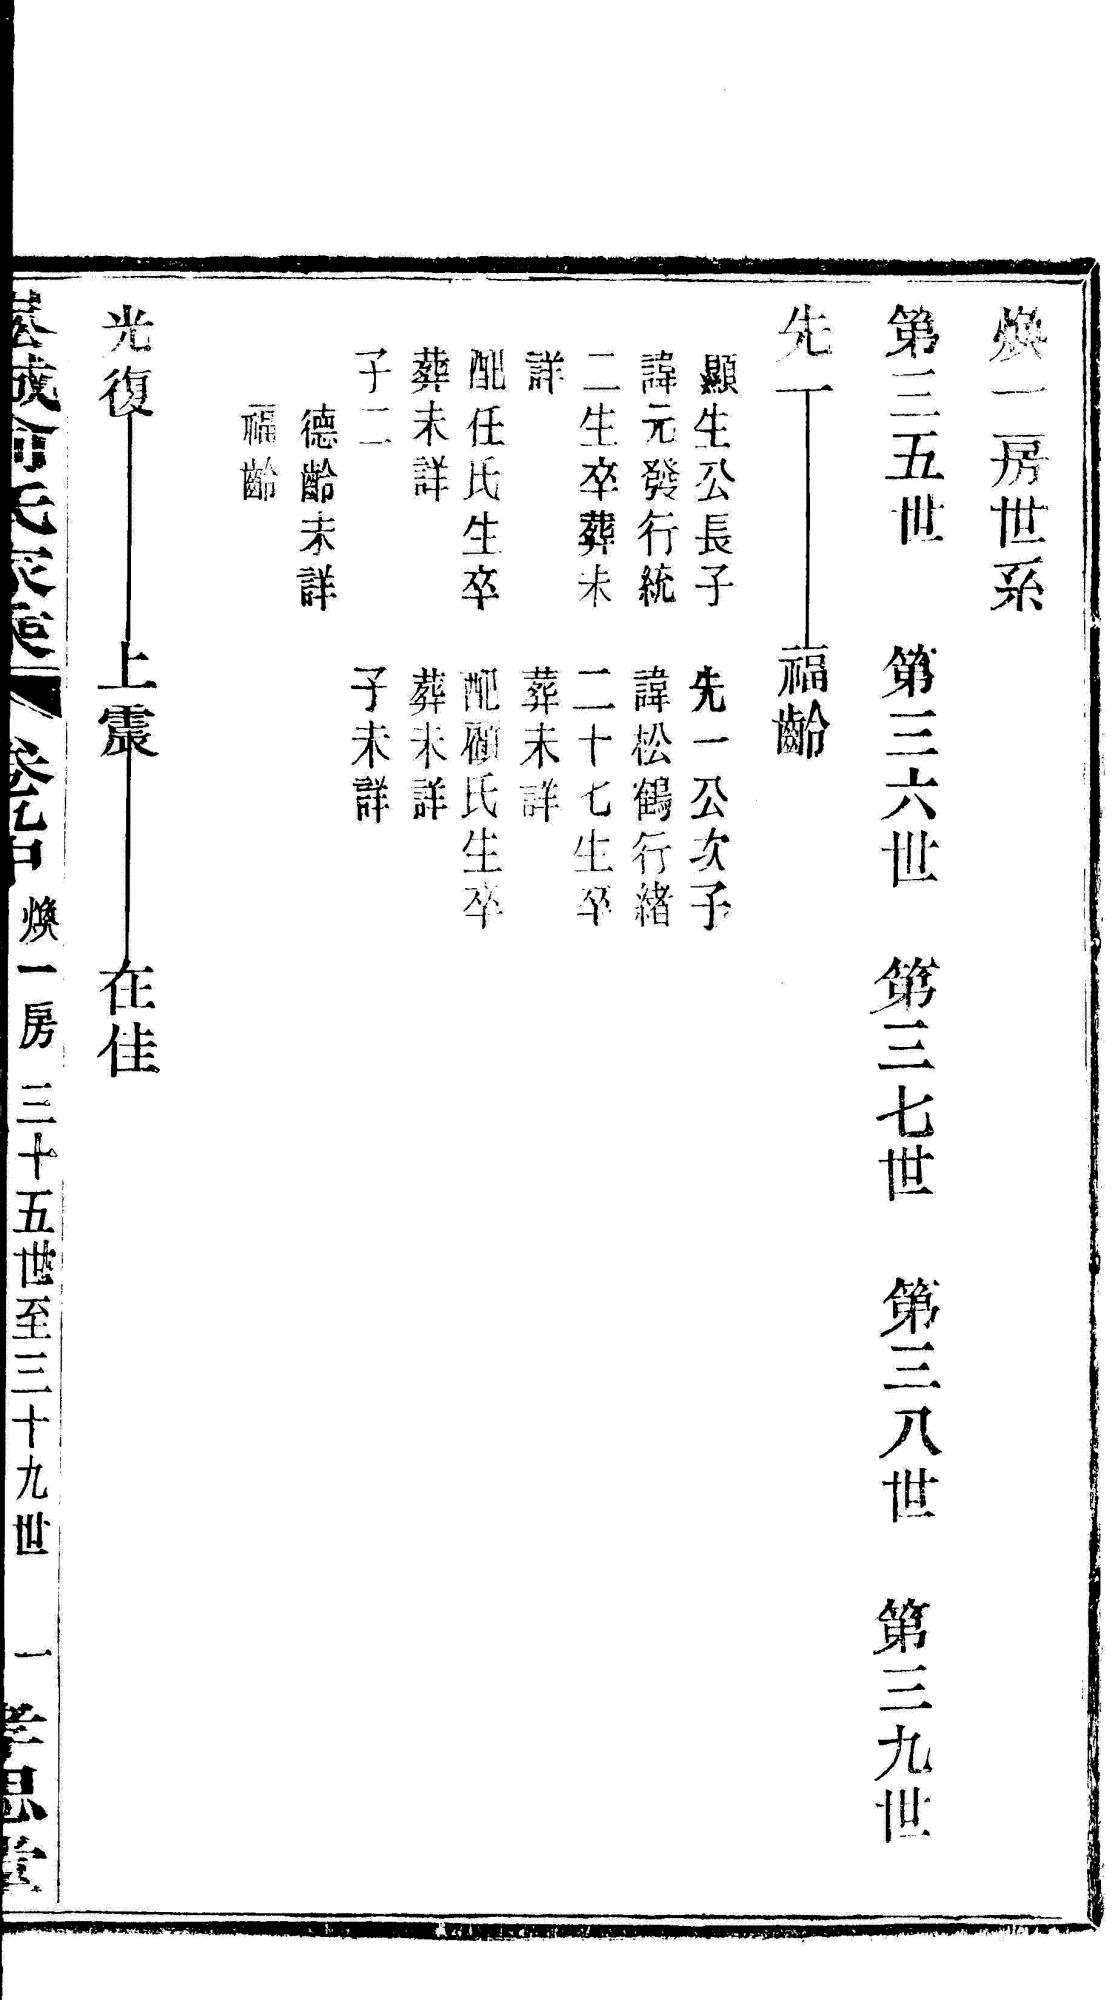 煥一房世系
第三五世 第三六世 第三七世 第三八世 第三九世
先一 福齡
顯生公長子
諱元發行統
二生卒葬未
詳
配任氏生卒
葬未詳
子二
德齡未詳
福齡
先一公次子
諱松鶴行緒
二十七生卒
葬未詳
配顧氏生卒
葬未詳
子未詳
光復 上震 在佳
城俞氏家乘 卷九中 煥一房 三十五世至三十九世 一 孝思堂